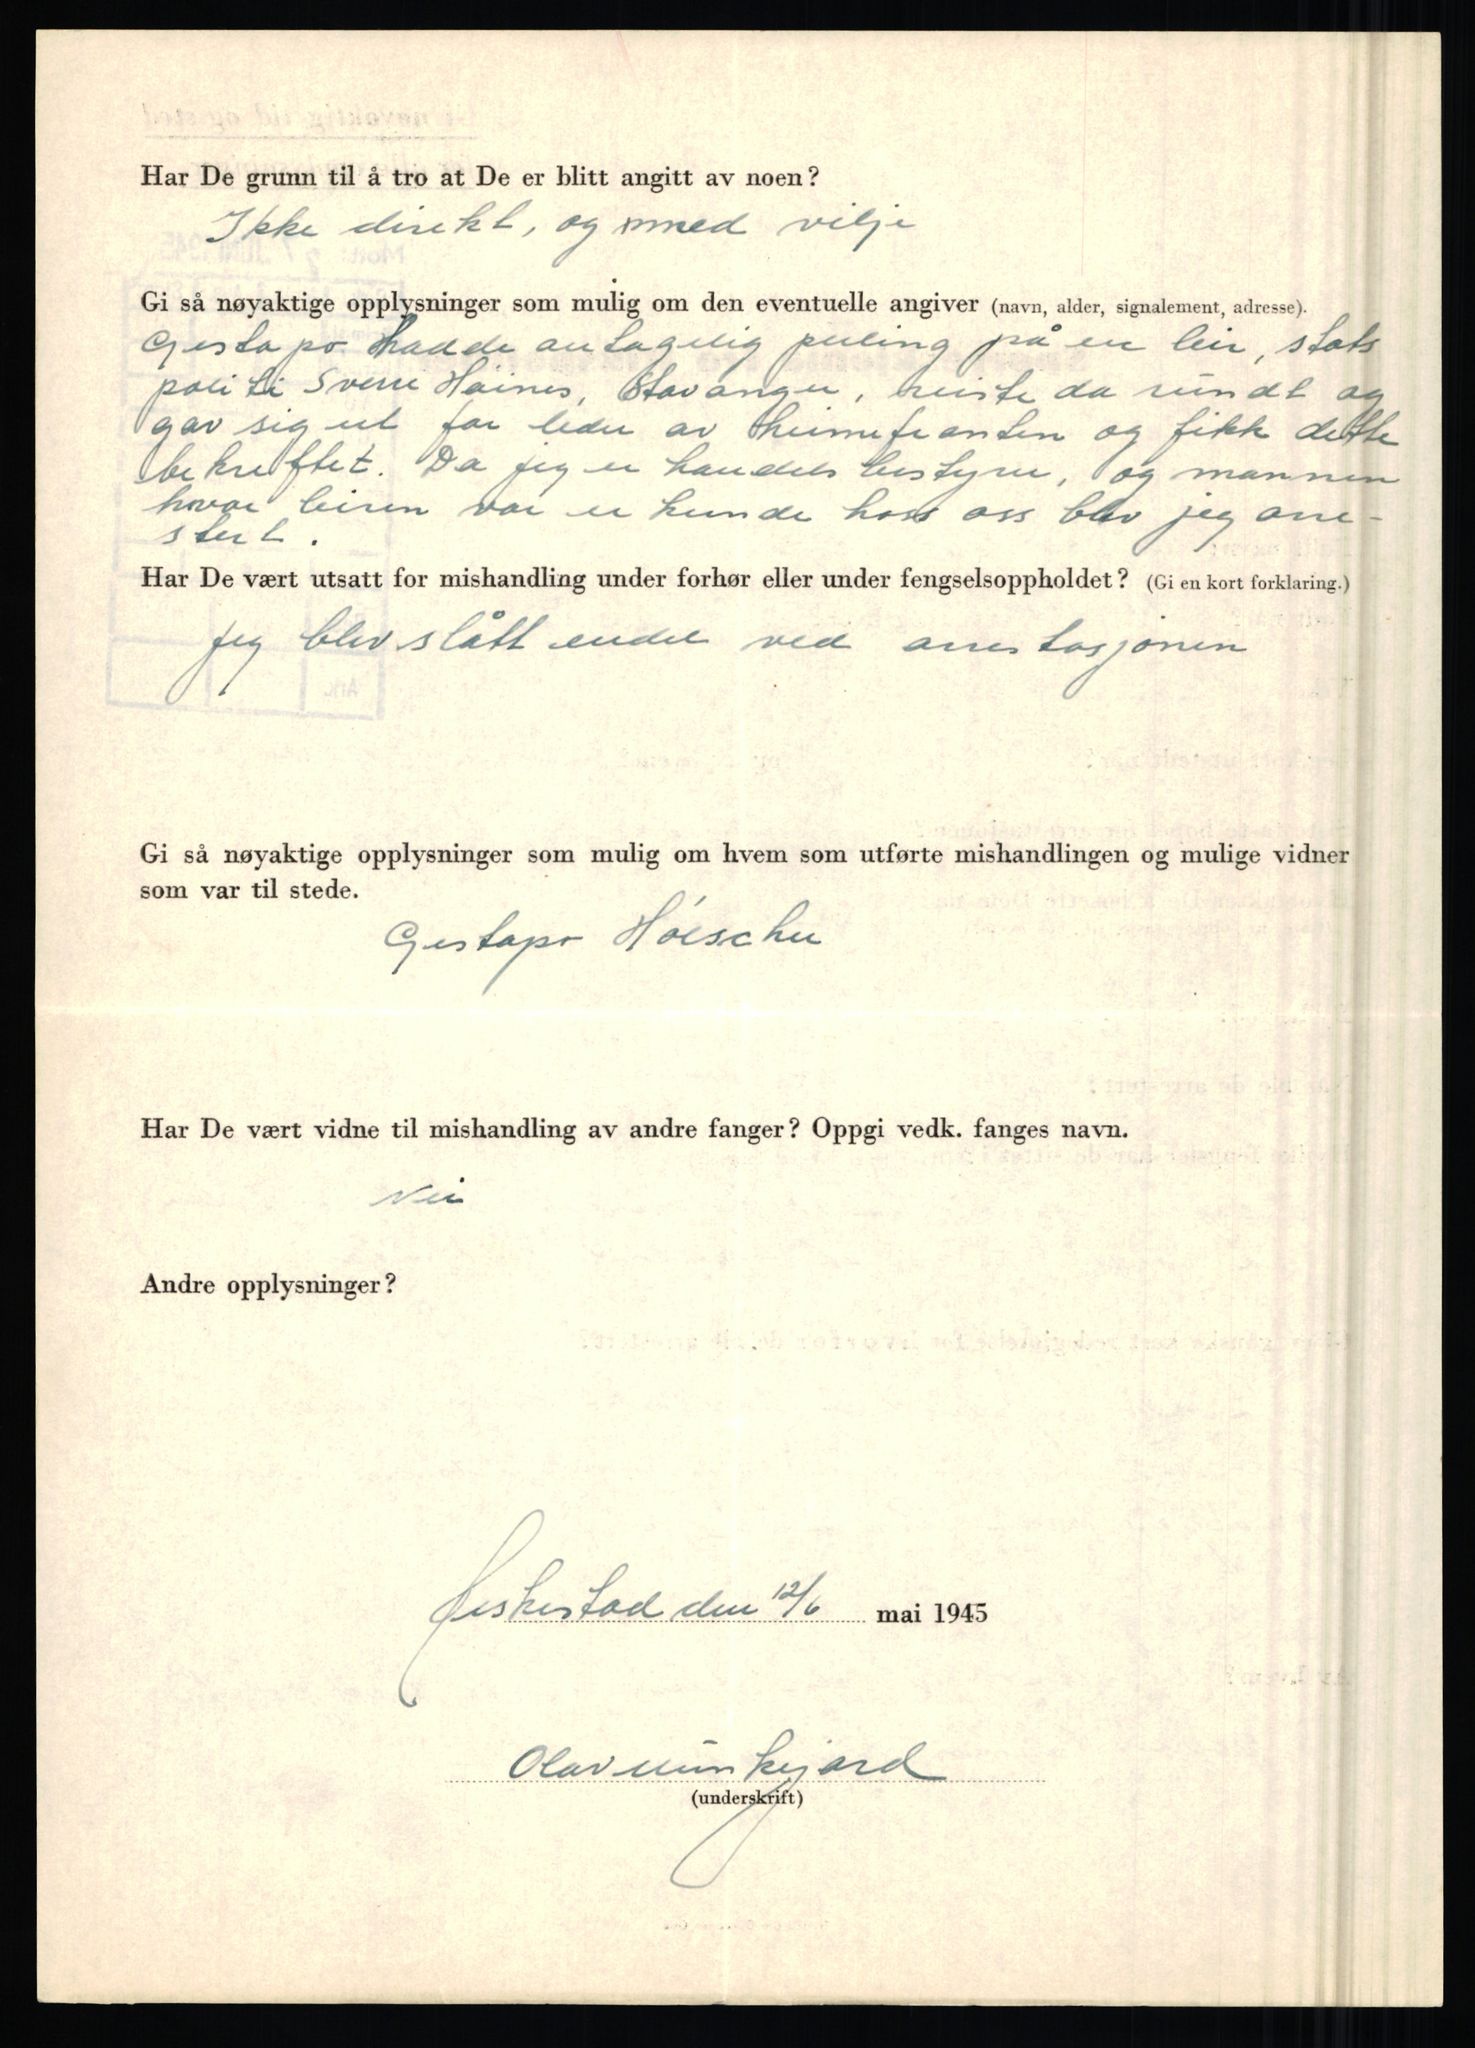 Har De grunn til å tro at De er blitt angitt av noen?
Ikke direkt, og med vilje
Gi så nøyaktige opplysninger som mulig om den eventuelle angiver (navn, alder, signalement, adresse).
Gestapo hadde antagelig peiling på en leir, stats
politi Sverre Høines, Stavanger, reiste da rundt og
gav sig ut for leder av heimefronten og fikk dette
bekreftet. Da jeg er handelsbestyrer, og mannen
hvor leiren var er kunde hoss oss blev jeg arre-
stert.
Har De vært utsatt for mishandling under forhør eller under fengselsoppholdet? (Gi en kort forklaring.)
Jeg blev slått endel ved arrestasjonen
Gi så nøyaktige opplysninger som mulig om hvem som utførte mishandlingen og mulige vidner
som var til stede.
Gestapo Hölscher
Har De vært vidne til mishandling av andre fanger? Oppgi vedk. fanges navn.
Nei
Andre opplysninger?
den 12/6 mai 1945
Olav
(underskrift)